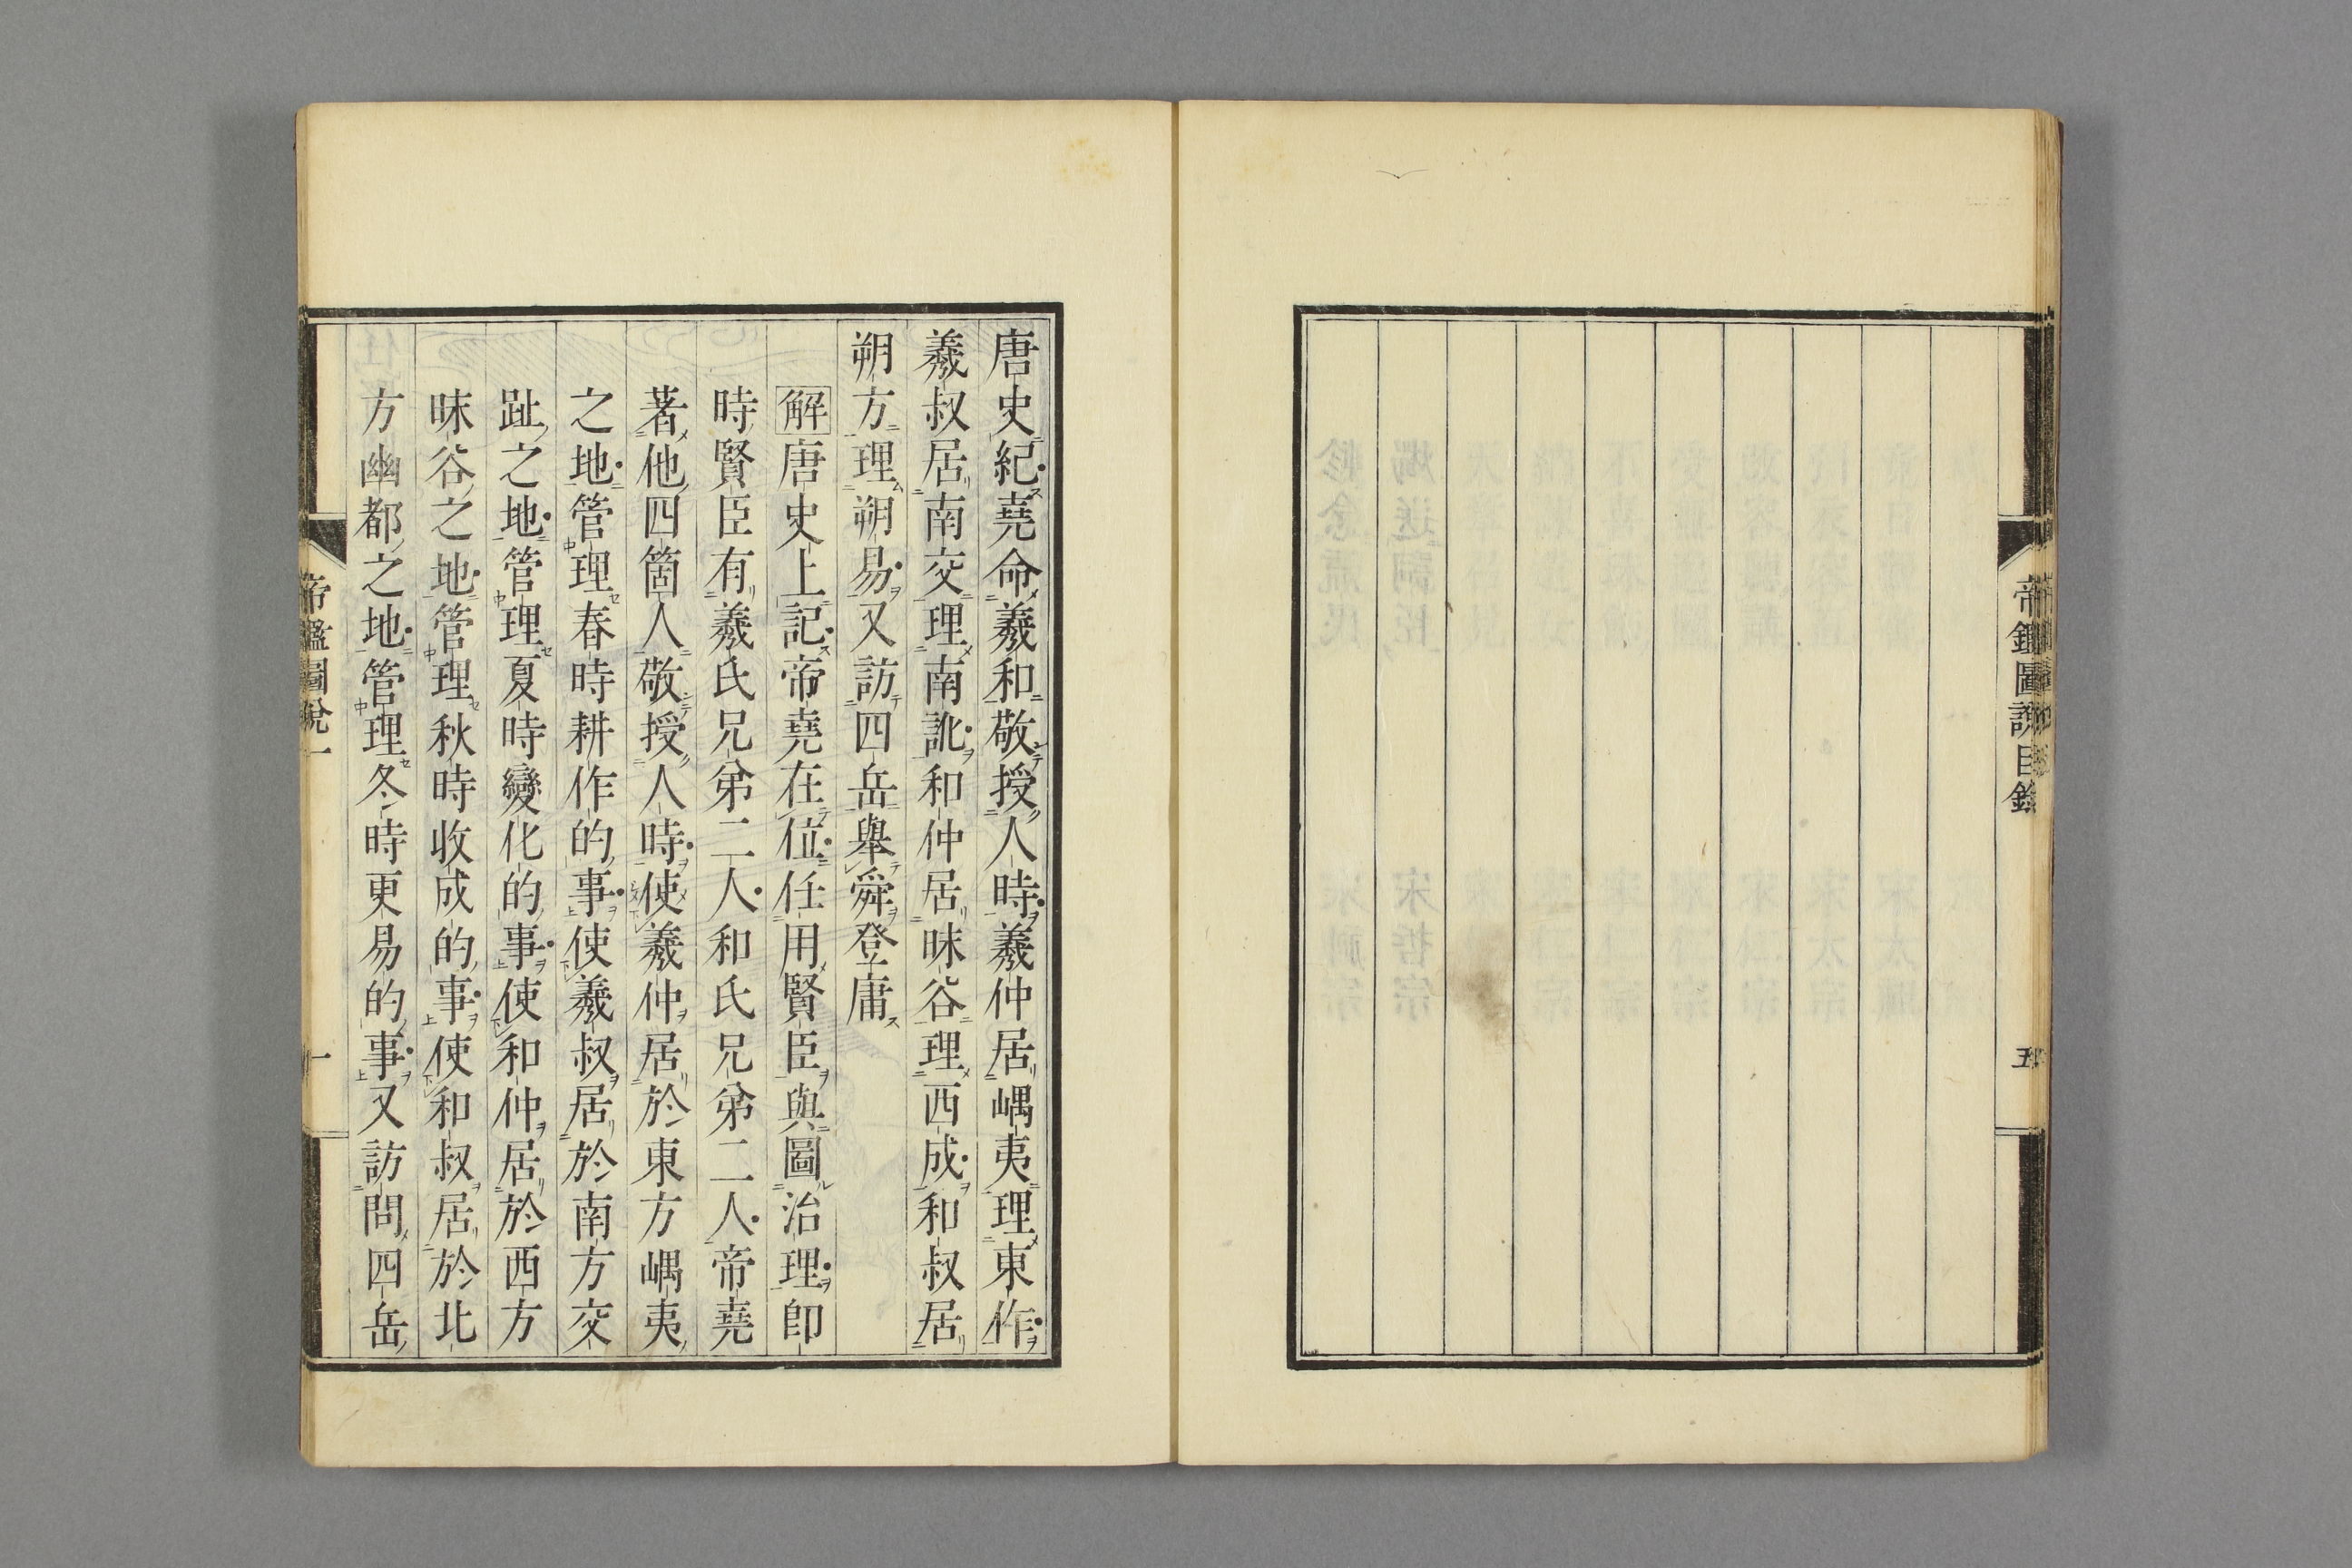 帝鑑圖說目錄
五
唐史紀堯命羲和敬授人時羲仲居嵎夷理東作
羲叔居南交理南訛和仲居昧谷理西成和叔居
朔方理朔易又訪四岳舉舜登庸
解唐史上記帝堯在位任用賢臣與圖治理卽
時賢臣有羲氏兄弟二人和氏兄弟二人帝堯
著他四箇人敬授人時使羲仲居於東方嵎夷
之地管理春時耕作的事使羲叔居於南方交
趾之地管理夏時變化的事使和仲居於西方
昧谷之地管理秋時收成的事使和叔居於北
方幽都之地管理冬時更易的事又訪問四岳
帝鑑圖說一
一